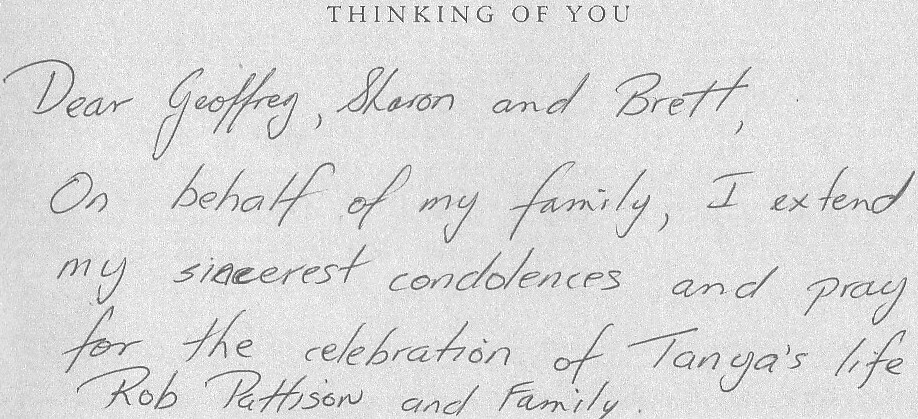 THINKING OF YOU
Dear Geoffrey, Sharon and Brett,
On behalf of my family, I extend
my sincerest condolences and pray
for the celebration of Tanya's life
Rob Pattison and Family.